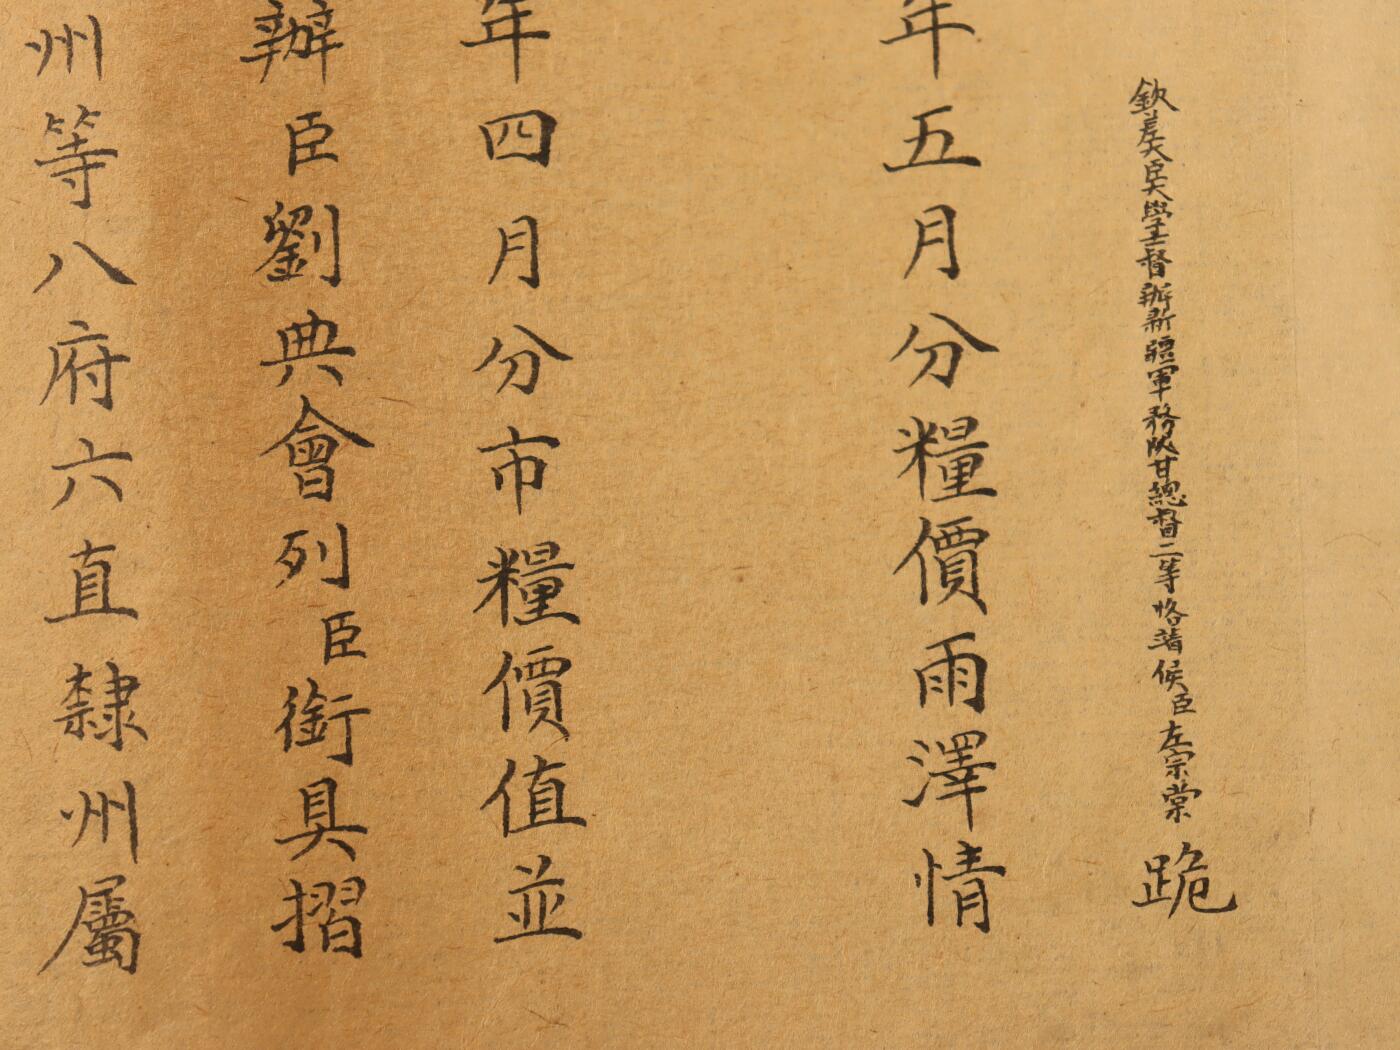 欽差大臣大學士督辦新疆軍務陝甘總督二等恪靖侯臣左宗棠跪
年五月分糧價雨澤情
年四月分市糧價值並
辦臣劉典會列臣銜具摺
州等八府六直隸州屬